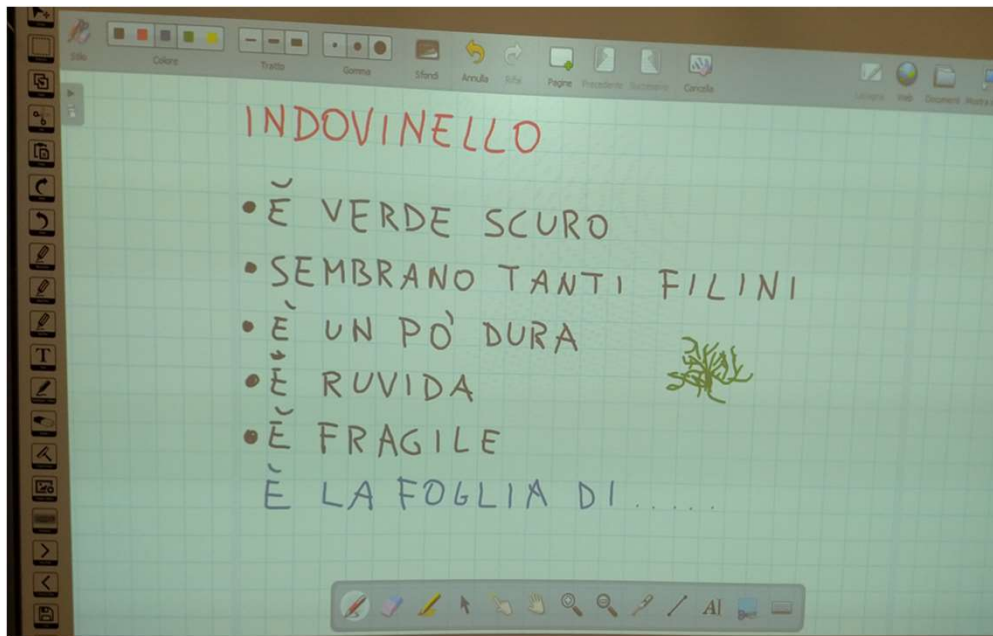 Stilo Colore Tratto Gomma Sfondi Annulla Rifai Pagine Precedente Successivo Cancella Lavagna Web Documenti
INDOVINELLO
• È VERDE SCURO
• SEMBRANO TANTI FILINI
• È UN PÒ DURA
• È RUVIDA
• È FRAGILE
È LA FOGLIA DI .....
T
AI